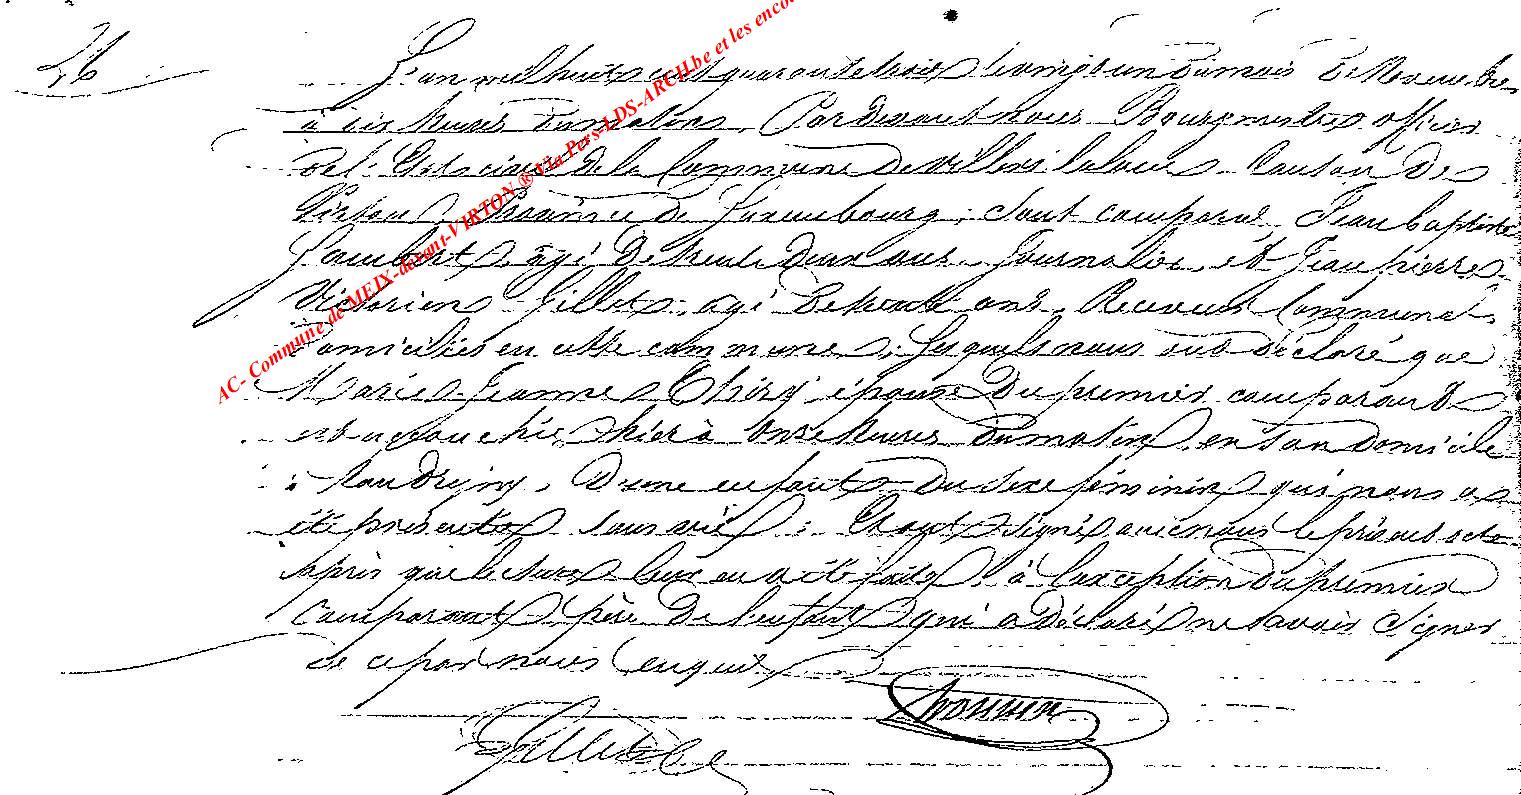 26
L'an mil huit cent quarante trois le vingt un du mois de Novembre
à dix heures du matin, Pardevant nous Bourgmestre officier
de l'Etat civil de la Commune de Villers la loue Canton de
Virton Province de Luxembourg, sont comparus Jean baptiste
Lambert, âgé de trente deux ans, Journalier, et Jean pierre
Victorien Gillet, agé de trente ans, Receveur Communal,
domiciliés en cette commune; Lesquels nous ont déclaré que
Marie Jeanne Thiry épouse du premier comparant
est accouchée hier à onze heures du matin, en son domicile
à houdrigny, d'une enfant du sexe féminin qui nous a
été présenté sans vie; Et ont signé avec nous le présent acte
Après que lecture leur en a été faite, à l'exception du premier
comparant, père de l'enfant, qui a déclaré ne savoir signer
de ce par nous enquis
Gillet
AC- Commune de MEIX-devant-VIRTON ® Via Pers-LDS-ARCH.be et les enco